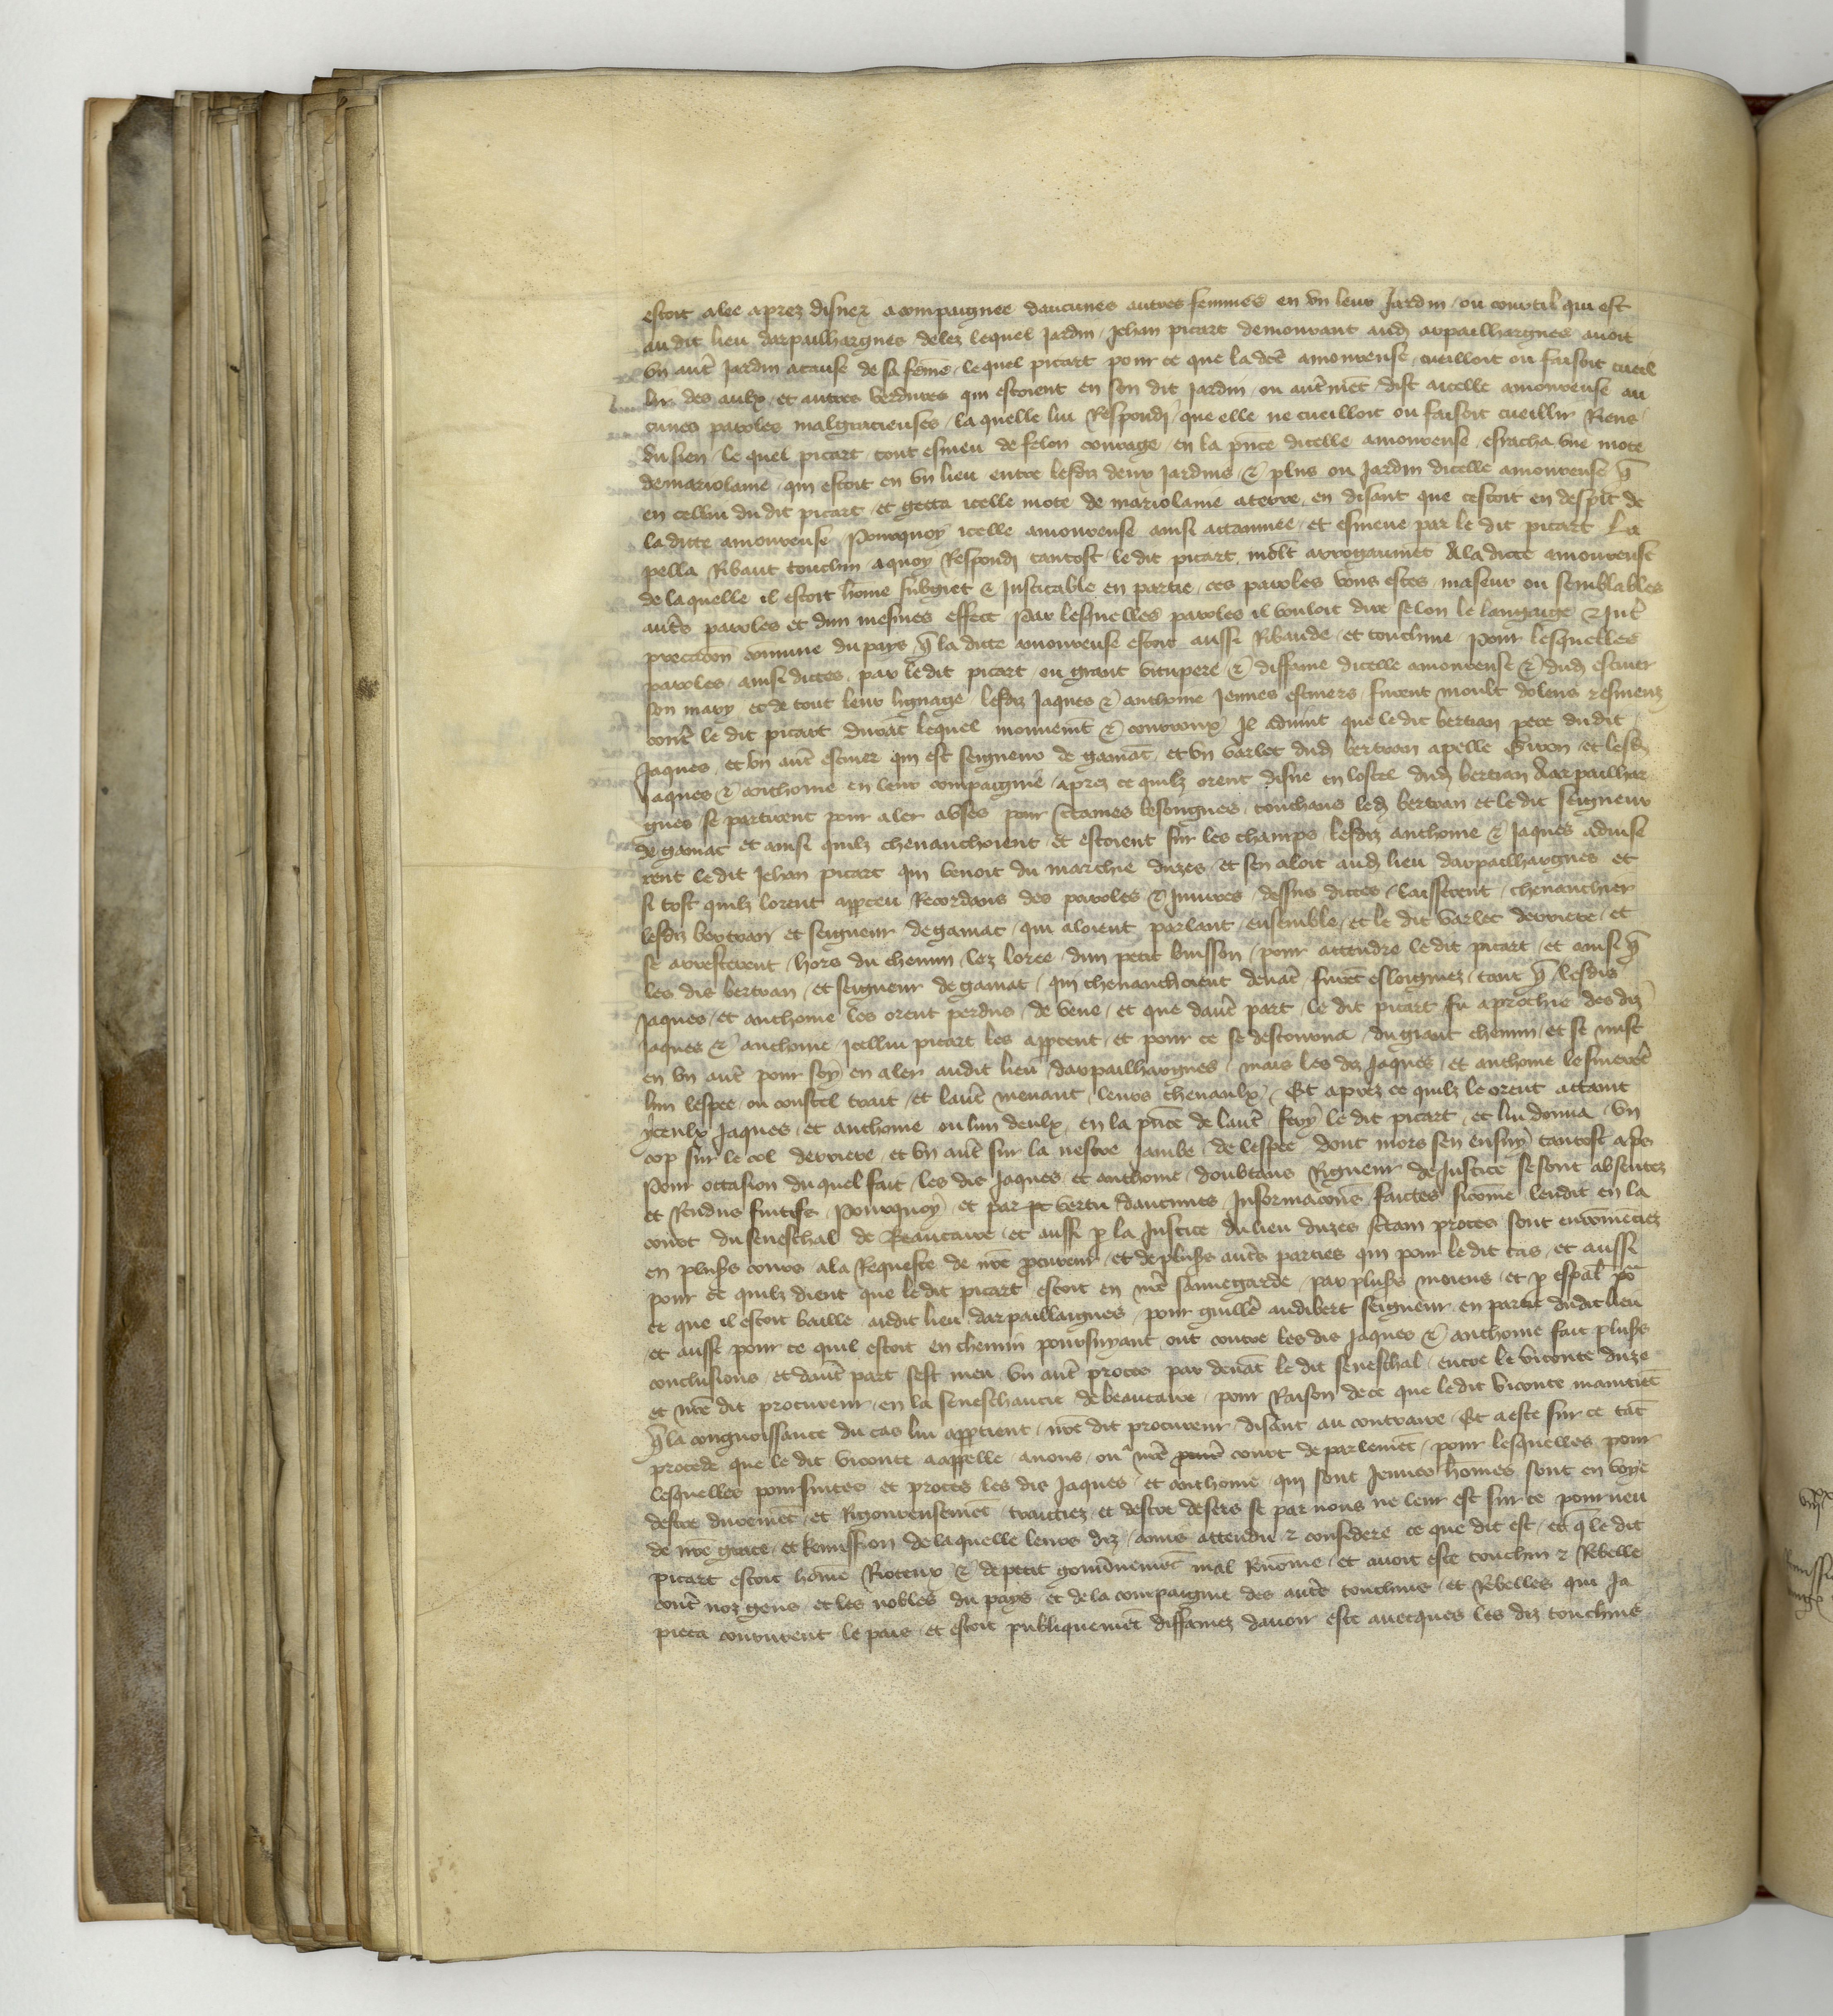 estoit alee aprez disner acompaignee daucunes autres femmes en vn leur Jardin ou courtil qui est
au dit lieu darpailhargnes delez lequel Jardin Jehan picart demourant aud arpailhargnes auoit
vn autˀ Jardin acause de sa fem̄e lequel picart pour ce que la dcē amoureuse cueilloit ou faisoit cueil
lir des aulx et autres verdures qui estoient en son dit Jardin ou autˀmēt dist aicelle amoureuse au
cunes paroles malgracieuses la quelle lui Respondi que elle ne cueilloit ou faisoit cueillir Riens
du sien le quel picart tout esmeu de felon courage en la p̄nce dicelle amoureuse esracha vne mote
de mariolaine qui estoit en vn lieu entre lesdiz deux Jardins & plus ou Jardin dicelle amoureuse q̄
en cellui du dit picart et getta icelle mote de mariolaine aterre en disant que cestoit en despit de
la dicte amoureuse Pourquoy icelle amoureuse ainsi attainnee et esmeue par le dit picart La
pella Ribaut touchin aquoy Respondi tantost le dit picart mōlt arrogaumēt Ala dicte amoureuse
de laquelle il estoit hōme subgiet & Justicable en partie ces paroles vous estes maseur ou semblables
autˀs paroles et dun mesmes effect Par lesquelles paroles il vouloit dire selon le langaige & Intˀ
pretacōn cōmune du pays q̄ la dicte amoureuse estoit aussi Ribaude et touchine Pour lesquelles
paroles ainsi dictes par ledit picart ou grant vitupere & diffame dicelle amoureuse & dud escuier
son mary et de tout leur lignage lesdiz Jaques & anthoine Jennes escuiers furent moult dolens & esmeuz
contˀ le dit picart durāt lequel mouuemēt & courroux Il aduint que le dit bertran pere du dit
Jaques et vn autˀ escuier qui est seigneur de gamāt et vn varlet dud bertran apelle Giron et lesd
Jaques & anthoine en leur compaignie aprez ce quilz orent disne en lostel dud bertran Darpailhar
gnes se partirent pour aler ahses pour cˀtaines besongnes touchans led bertran et le dit seigneur
de gamat et ainsi quilz cheuauchoient et estoient sur les champs lesdiz anthoine & Jaques aduise
rent le dit Jehan picart qui venoit du marchie duzes et sen aloit aud lieu darpailhargnes et
si tost quilz lorent apperceu Recordans des paroles & Iniures dessus dictes laisserent cheuauchier
lesdiz bertran et seigneur de gamat qui aloient parlant ensemble et le dit varlet derriere et
se arresterent hors du chemin lez loree dun petit buisson pour attendre ledit picart et ainsi q̄
les dis bertran et seigneur de gamat qui cheuauchoient deuāt furēt esloigniez tant q̄ lesdis
Jaques et anthoine les orent perdus de veue et que dautˀ part le dit picart fu aprochie des diz
Jaques & anthoine Icellui picart les apperceut et pour ce se destourna du grant chemin et se mist
en vn autˀ pour soy en aler audit lieu darpailhargnes mais les diz Jaques et anthoine le suiuerēt
lun lespee ou coustel trait et lautˀ menant leurs cheuaulx Et aprez ce quilz le orent attaint
yceulx Jaques et anthoine ou lun deulx en la p̄nce de lautˀ fery le dit picart et lui donna vn
cop sur le col derriere et vn autˀ sur la nestre Jambe de lespee dont mors sen ensuy tantost apˀs
Pour occasion du quel fait les dis Jaques et anthoine doubtans Rigueur de Justice se sont absentez
et Rendus fuitifs Pourquoy et par vertu daucunes Informacōns faictes sicōme lendit en la
court du seneschal de Beaucaire et aussi p la Justice du lieu duzes cˀtain proces sont encōmēciez
en plusˀs cours ala Requeste de nrē procureur et de plusˀs autˀs parties qui pour le dit cas et aussi
pour ce quilz dient que le dit picart estoit en nrē sauuegarde par plusˀs moiens et p esp̄al po
ce que il estoit baille audit lieu darpaillaignes pour guillē audibert seigneur en partie dudit lieu
et aussi pour ce quil estoit en chemin poursuyant ont contre les dis Jaques & anthoine fait plusˀs
conclusions et dautˀ part sest meu vn autˀ proces par deuāt le dit seneschal entre le viconte duze
et nrē dit procureur en la seneschaucie de beaucaire pour Raison de ce que le dit viconte maintiēt
q̄ la congnoissance du cas lui appˀtient nrē dit procureur disant au contraire Et a este sur ce tāt
procede que le dit viconte a appelle anous ou anrē court de parlemēt pour lesquelles pour
lesquelles poursuites et proces les dis Jaques et anthoine qui sont Jennes hōmes sont en voye
destre duremēt et Rigoureusemēt traictiez et destre desers se par nous ne leur est sur ce pourueu
de nrē grace et Remission de laquelle leurs diz amis attendu & considere ce que dit est et q̄ le dit
picart estoit hōme Rioteux & de petit gouuˀnemēt mal Renōme et auoit este touchin & Rebelle
contˀ noz gens et les nobles du pays et de la compaignie des autˀs touchins et Rebelles qui Ja
pieca coururent le pais et estoit publiquemēt diffamez dauoir este auecques les diz touchins